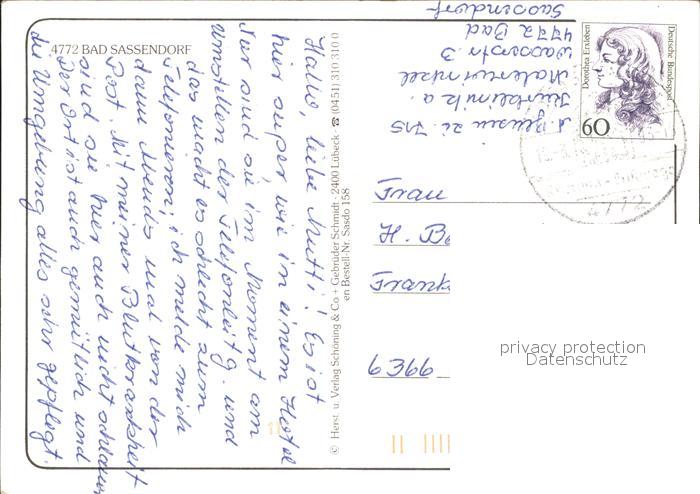 4772 BAD SASSENDORF
Hallo, liebe Mutti! Es ist
hier super wie in einem Hotel
Nur sind sie im Moment am
umstellen der Telefonleitg. und
das macht es schlecht zum
Telefonieren; ich melde mich
dann Abends mal von der
Post. Mit meiner Blutkrankheit
sind sie hier auch nicht schlauer
Der Ort ist auch gemütlich und
die Umgebung alles sehr gepflegt.
© Herst. u. Verlag Schöning & Co + Gebrüder Schmidt · 2400 Lübeck · ☎ (0451) 310 310 0
en Bestell-Nr. Sasdo 158
zi 715
Wasserstr. 3
4772 Bad
Sassendorf
Dorothea Erxleben
Deutsche Bundespost
60
4772
Frau
H. Be
6366
privacy protection
Datenschutz